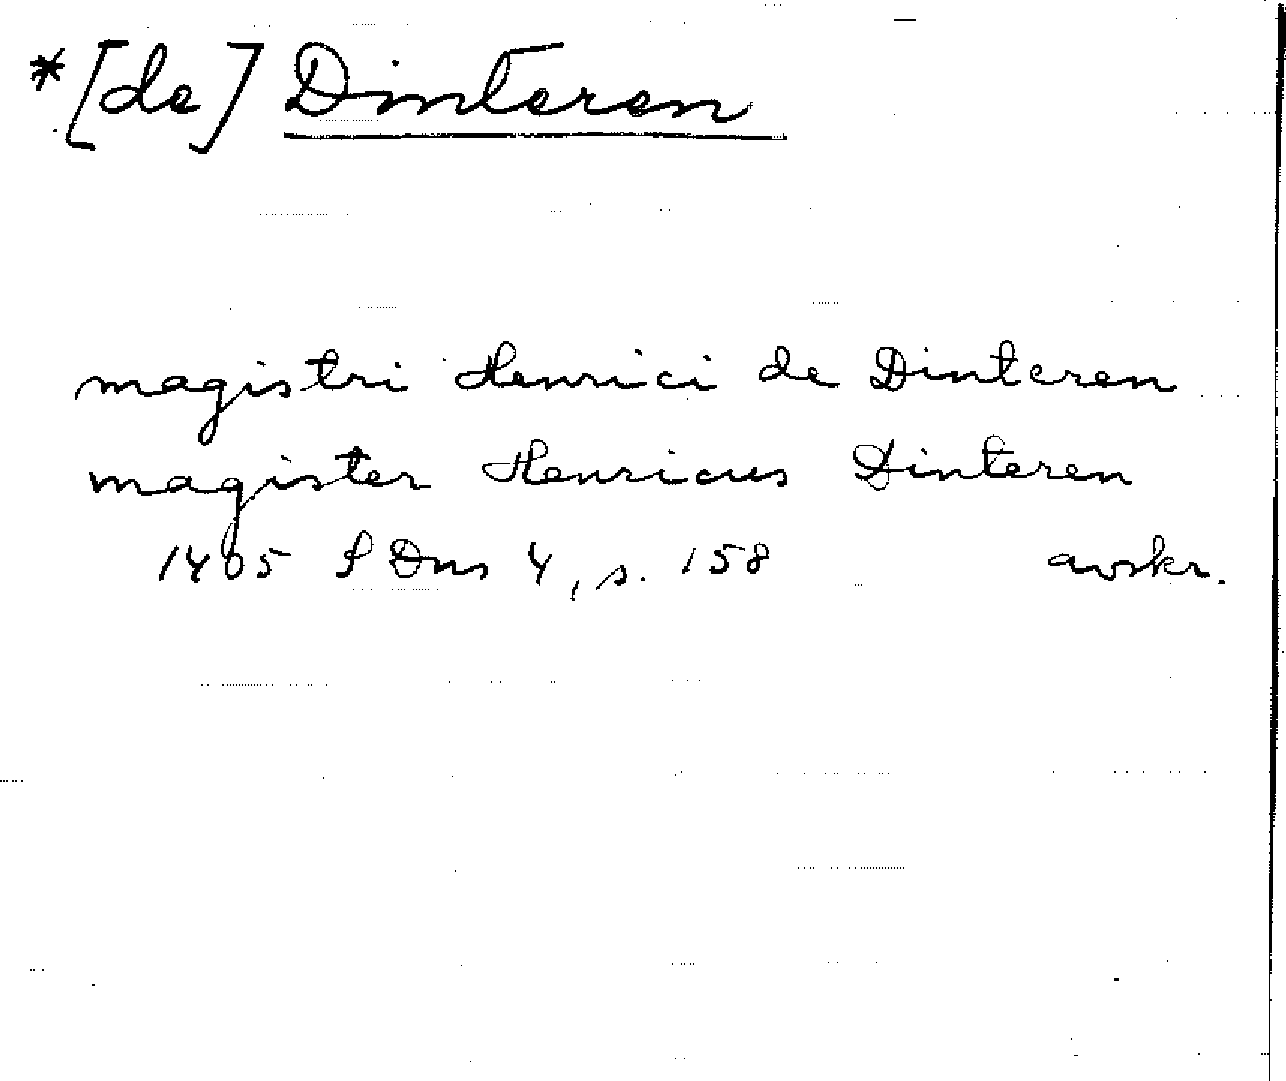 *[de] Dinteren
magistri Henrici de Dinteren
magister Henricus Dinteren
1405 SDns 4, s. 158 avskr.